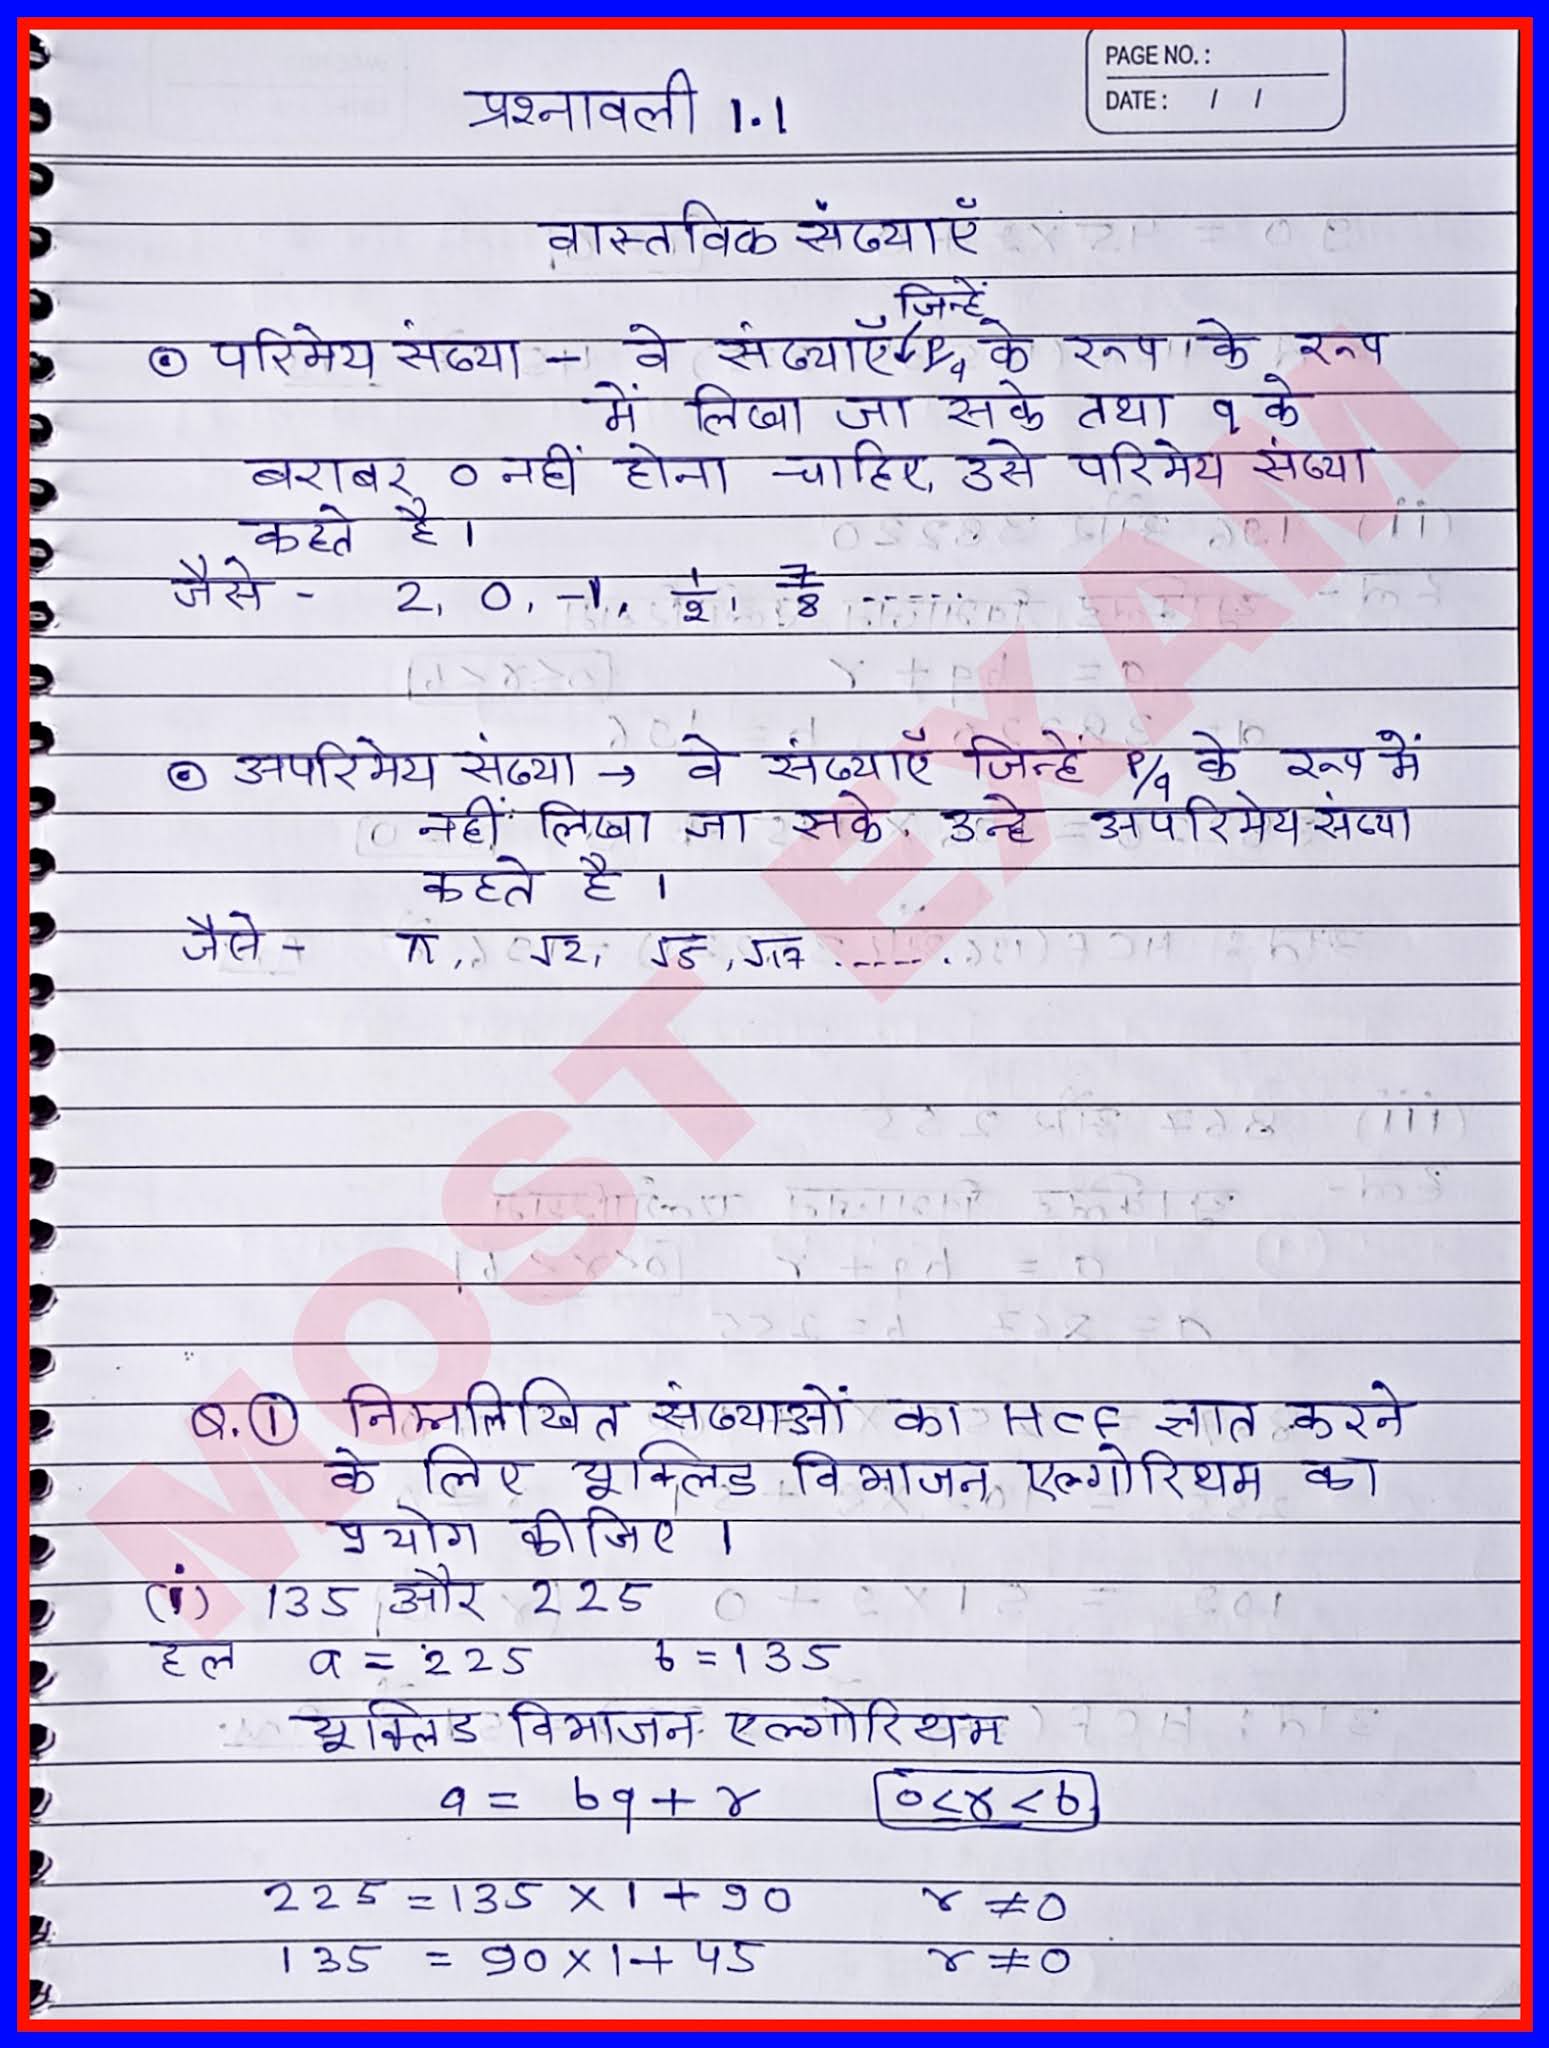 PAGE NO.:
DATE: / /
प्रश्नावली 1.1
वास्तविक संख्याएँ
जिन्हें
⊙ परिमेय संख्या → वे संख्याएँ P/q के रूप के रूप
में लिखा जा सके तथा q के
बराबर 0 नहीं होना चाहिए, उसे परिमेय संख्या
कहते है।
जैसे - 2, 0, -1, 1/2, 7/8 ......
⊙ अपरिमेय संख्या → वे संख्याएँ जिन्हें P/q के रूप में
नहीं लिखा जा सके, उन्हे अपरिमेय संख्या
कहते है।
जैसे - π, √2, √5, √17 .......
MOST EXAM
Q.① निम्नलिखित संख्याओं का HCF ज्ञात करने
के लिए यूक्लिड विभाजन एल्गोरिथम का
प्रयोग कीजिए।
(i) 135 और 225
हल a = 225 b = 135
यूक्लिड विभाजन एल्गोरिथम
a = bq + r 0<r<b
225 = 135 × 1 + 90 r ≠ 0
135 = 90 × 1 + 45 r ≠ 0